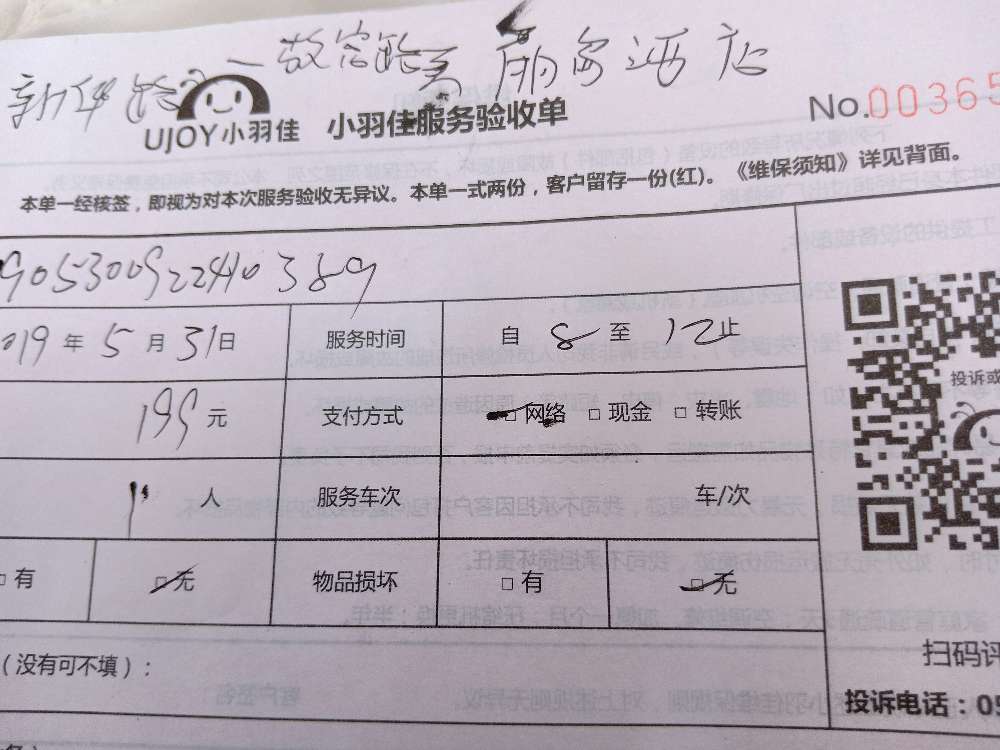 新华路一故宫路口 丽多酒店
UJOY小羽佳 小羽佳服务验收单
No.00365
本单一经核签，即视为对本次服务验收无异议。本单一式两份，客户留存一份(红)。《维保须知》详见背面。
019年5月31日 服务时间 自 8 至 12 止
199元 支付方式 网络 □ 现金 □ 转账
1 人 服务车次 车/次
□ 有 □ 无 物品损坏 □ 有 □ 无
投诉或
（没有可不填）：
扫码评
投诉电话：05